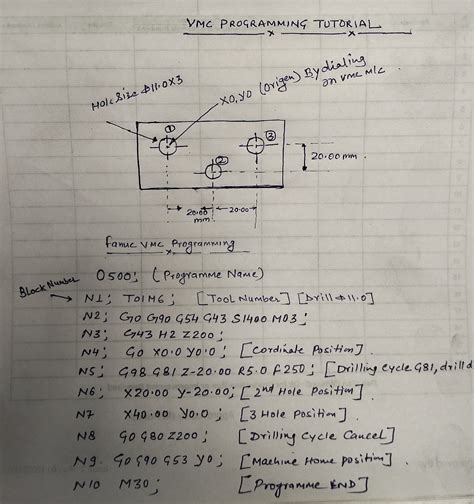 VMC PROGRAMMING TUTORIAL
Hole Size ϕ11.0X3
X0,Y0 (Origen) By dialing
on VMC M/C
①
③
②
20.00 mm
20.00
mm
20.00
fanuc VMC Programming
Block Number
O500; (Programme Name)
N1; T01M6; [Tool Number] [Drill ϕ11.0]
N2; G0 G90 G54 G43 S1400 M03;
N3; G43 H2 Z200;
N4; G0 X0.0 Y0.0; [Cordinate Position].
N5; G98 G81 Z-20.00 R5.0 F250; [Drilling Cycle G81, drill d
N6; X20.00 Y-20.00; [2nd Hole Position]
N7 X40.00 Y0.0; [3 Hole Position]
N8 G0 G80 Z200; [Drilling Cycle Cancel]
N9. G0 G90 G53 Y0; [Machine Home position]
N10 M30; [Programme END]